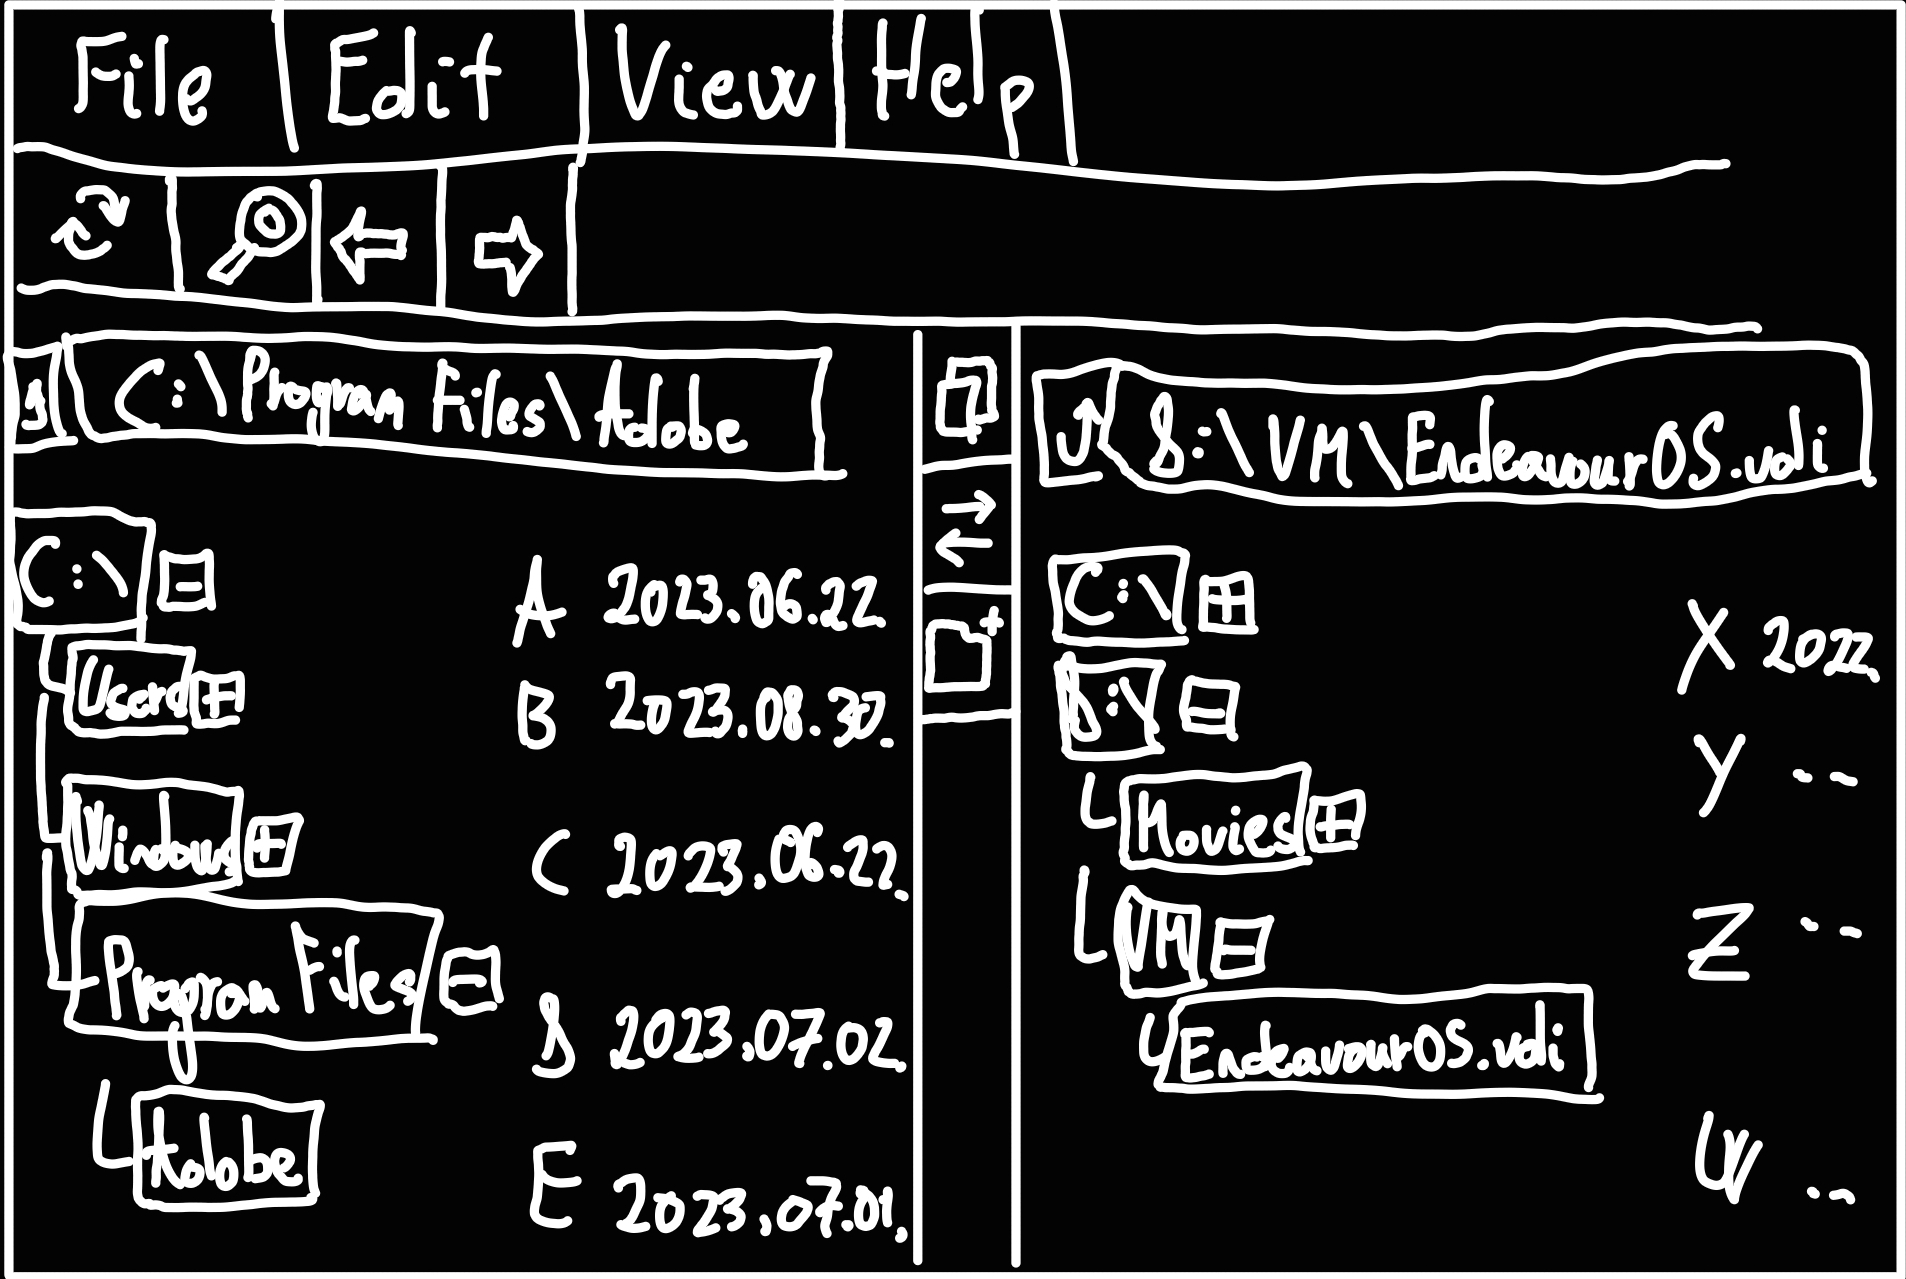 File Edit View Help
C:\Program Files\Adobe
D:\VM\EndeavourOS.vdi
C:\
Users
Windows
Program Files
Adobe
A 2023.06.22.
B 2023.08.30.
C 2023.06.22.
D 2023.07.02.
E 2023.07.01.
C:\
D:\
Movies
VM
EndeavourOS.vdi
X 2022.
Y -- --
Z -- --
W -- --